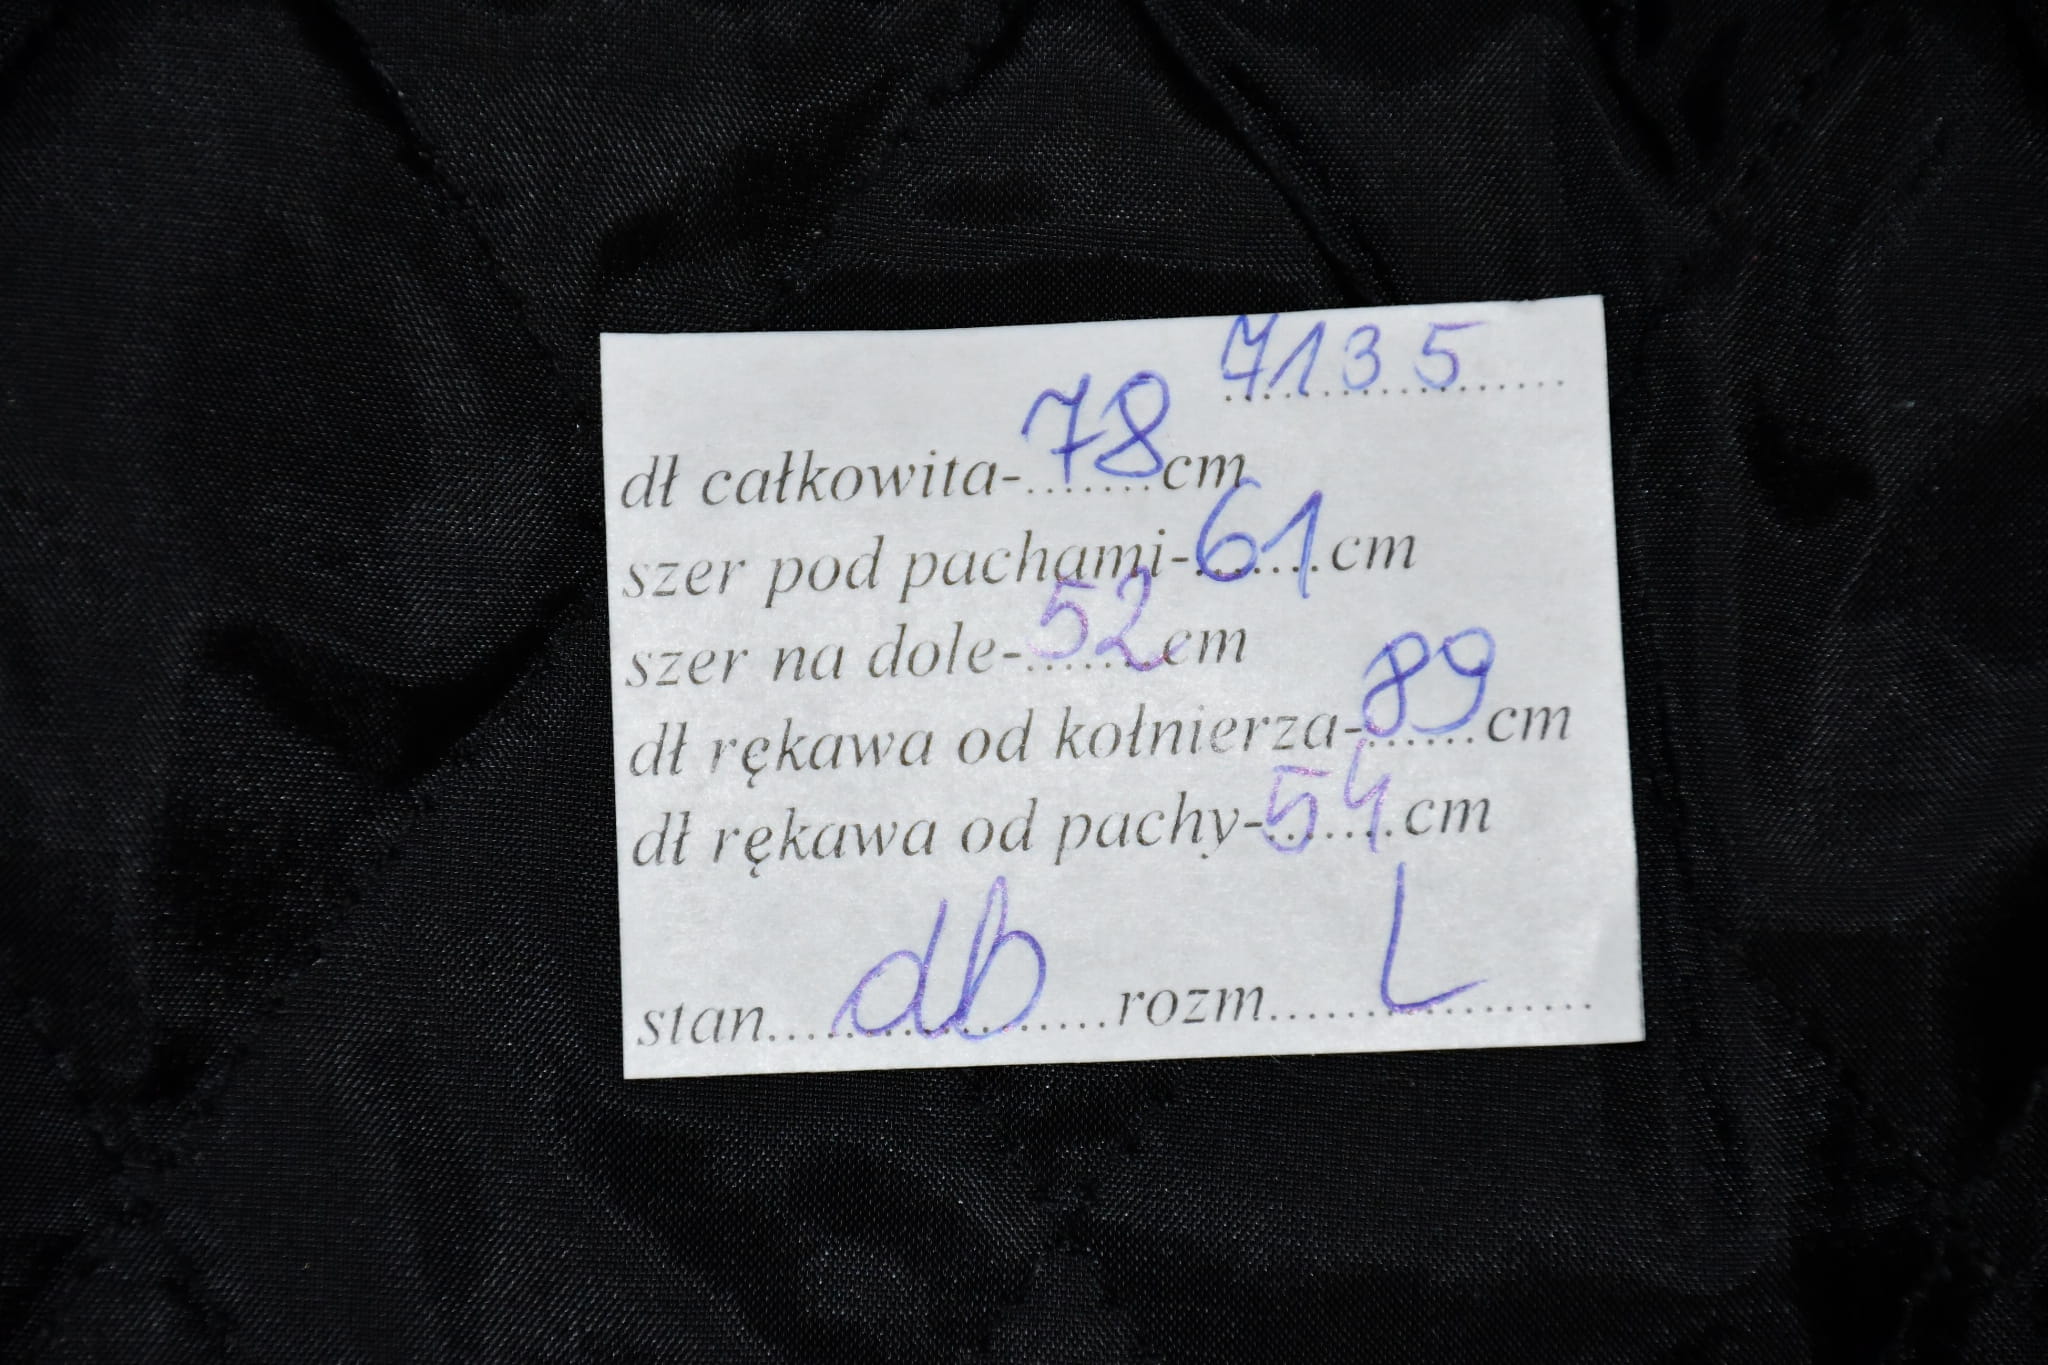 7135
dł całkowita-.78.cm
szer pod pachami-61.cm
szer na dole-.52.cm
dł rękawa od kołnierza-89.cm
dł rękawa od pachy-54.cm
stan....db....rozm....L....